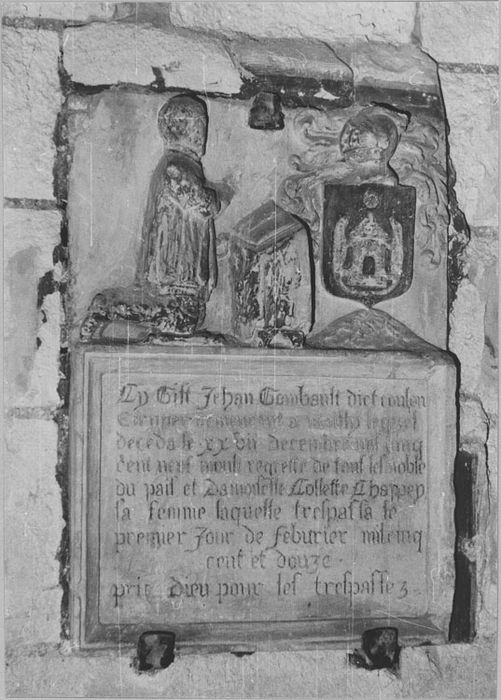 Cy Gist Jehan Gombault dict coulon
Escuyer demeurant a lequel
deceda le xx vii decembre mil cinq
cent neuf moult regrette de tous les noble
du pais et Damoiselle Collette Chappey
sa femme laquelle trespassa le
premier Jour de feburier mil cinq
cent et douze
prie Dieu pour les trespassez